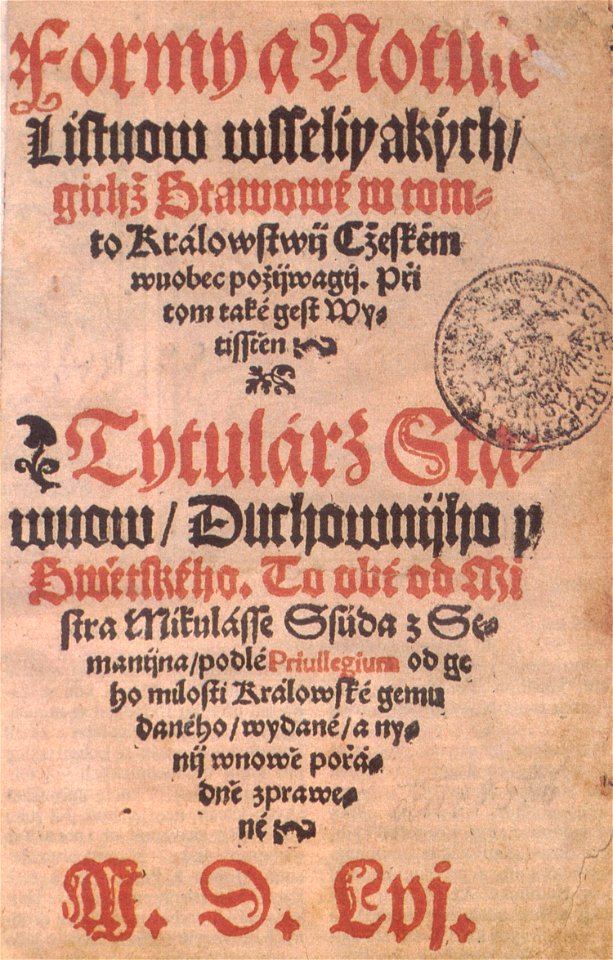 Formy a Notule
Listuow wsselipakých/
gichž Stawowé w tom-
to Králowstwij Cžeském
wuobec požijwagij. Při
tom také gest Wy-
tisstěn
Tytulárž Sta-
wuow/ Duchownijho y
Swětského. To obé od Mi
stra Mikulásse Ssúda z Se-
manijna/ podlé Priuilegium od ge
ho milosti Králowské gemu
daného/ wydané/ a ny-
nij wnowě pořá-
dně zprawe-
né
M. D. Lvj.